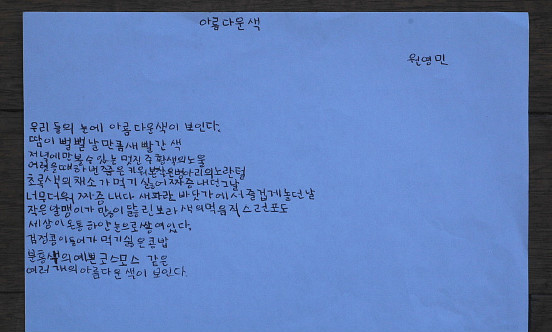 아름다운 색
원영민
우리 들의 눈에 아름다운색이 보인다.
땀이 뻘뻘 날 만큼 새빨간 색
저녁에만 볼수 있는 멋진 주황색의 노을
어렸을때 하번쯤은 키워본 작은병아리의 노란털
초록색의 채소가 먹기 싫어 짜증 내던 그날
너무더워 짜증내다 새파란 바닷가에서 즐겁게 놀던날
작은 알맹이가 많이 달린 보라색의 먹음직스런포도
세상이 온통 하얀 눈으로 쌓여있다.
검정콩이 들어가 먹기싫은 콩밥
분홍색의 예쁜코스모스 같은
여러 개의 아름다운 색이 보인다.